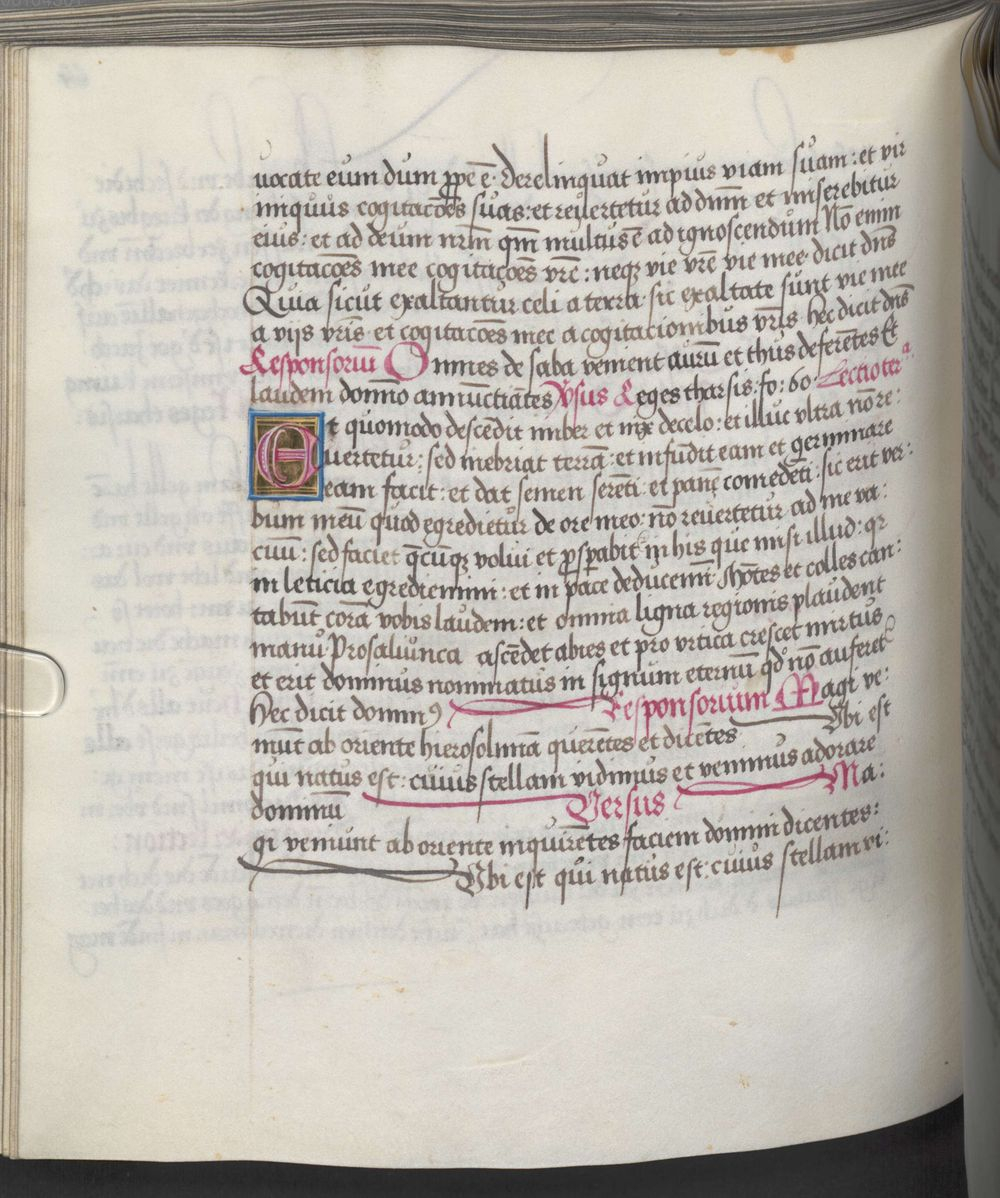 uocate eum dum ꝓpe ē· derelinquat impius viam suam: et vir
iniquus cogitacōēs suas: et reuertetur ad dnm̄ et miserebitur
eius: et ad deum nrm̄ qm̄ multus ē ad ignoscendum No enim
cogitacōēs mee cogitacōēs vrē: neqꝫ vie vrē vie mee· dicit dns̄
Quia sicut exaltantur celi a terra· sic exaltate sunt vie mee
a vijs vris̄· et cogitacōēs mee a cogitacionibus vris̄· Hec dicit dns̄
Responsoriū Omnes de saba venient aurū et thus deferētes Et
laudem domino annūctiātes Vsus Reges tharsis: fo: 60· Lectio terᵃ
Et quomodo descēdit imber et nix de celo: et illuc vltra nō re:
uertetur: sed inebriat terrā: et infudit eam et germinare
eam facit: et dat semen serēti· et panē comedēti: sic erit ver:
bum meū quod egredietur de ore meo: nō reuertetur ad me va:
cuū: sed faciet q̄cūqꝫ volui et ꝓsꝑabit in his que misi illud: qꝛ
in leticia egrediemini: et in pace deducemī: Mōtes et colles can:
tabūt corā vobis laudem: et omnia ligna regionis plaudent
manu Pro saliunca ascēdet abies et pro vrtica crescet mirtus
et erit dominus nominatus in signum eternū qd̓ nō auferet᷑
Hec dicit dominꝰ Responsorium Magi ve:
niūt ab oriente hierosolimā querētes et dicētes Vbi est
qui natus est: cuius stellam vidimus et venimus adorare
dominū Versus Ma:
gi veniunt ab oriente inquirētes faciem domini dicentes:
Vbi est qui natus est: cuius stellam vi: